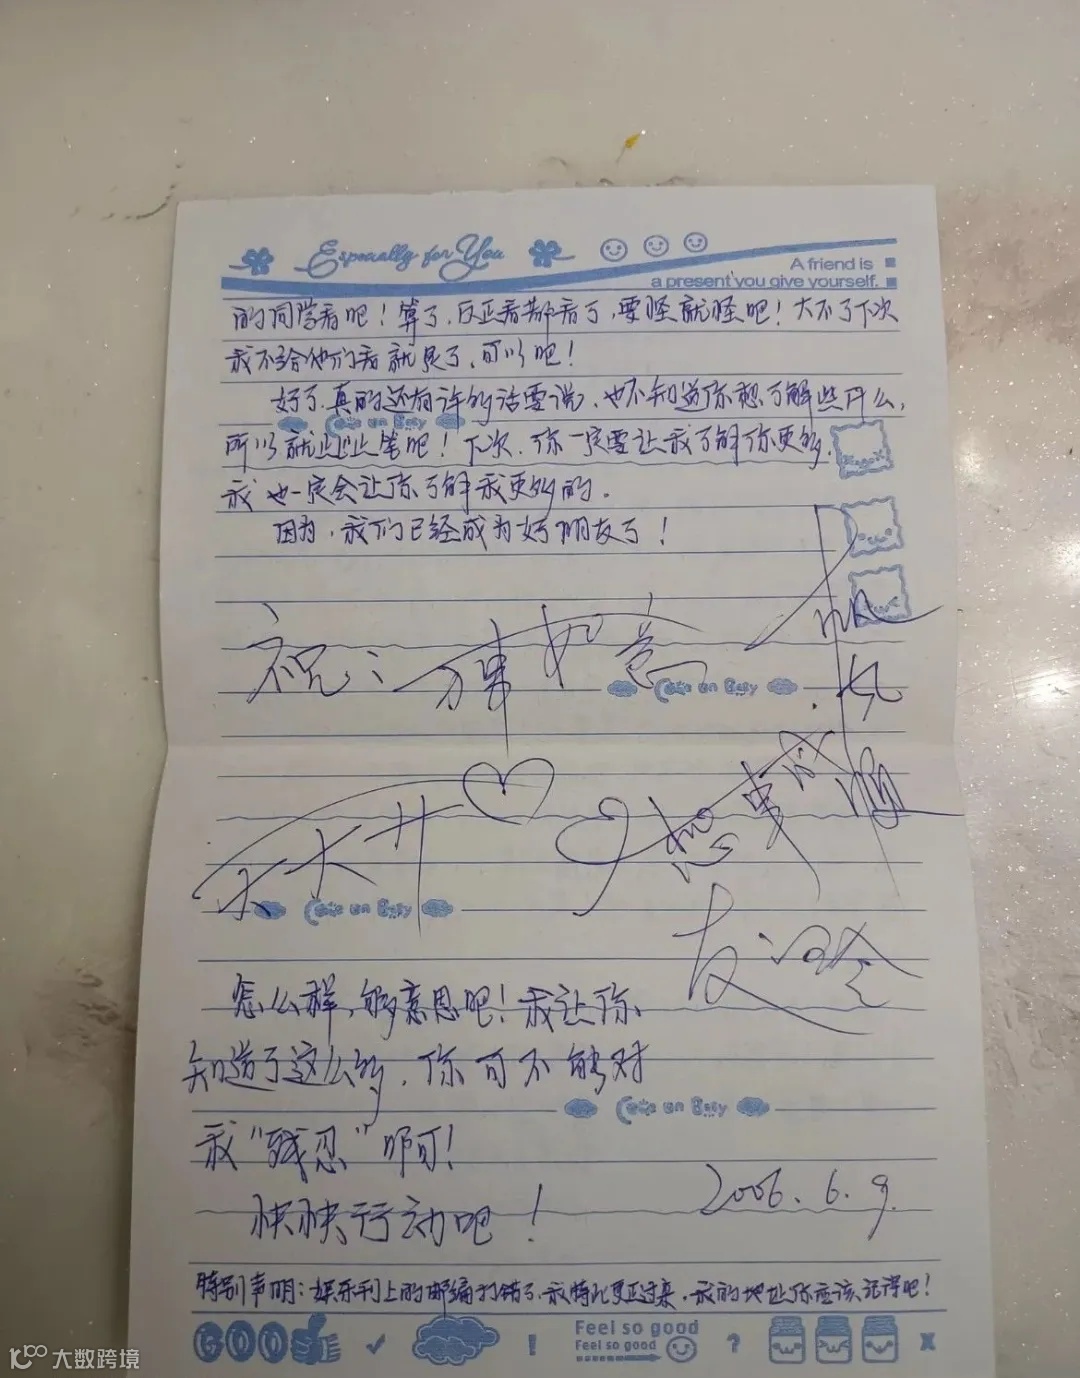 Especially for You
A friend is
a present you give yourself.
的同学看吧！算了，反正看都看了，要怪就怪吧！大不了下次
我不给他们看就是了，可以吧！
好了，真的还有许多话要说，也不知道你想了解些什么，
Come on Baby
所以就此止笔吧！下次，你一定要让我了解你更多，
我也一定会让你了解我更多的。
因为，我们已经成为好朋友了！
祝：万事如意
Come on Baby
天天开
心想事成
Come on Baby
友：
怎么样，够意思吧！我让你
知道了这么多，你可不能对
Come on Baby
我“残忍”啊！
快快行动吧！
2006.6.9.
特别声明：娱乐刊上的邮编打错了，我特此更正过来，我的地址你应该记得吧！
GOOD
Feel so good
Feel so good
大数跨境